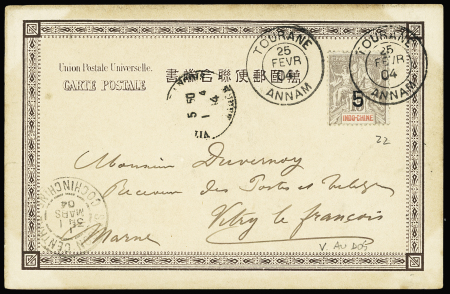 Union Postale Universelle.
CARTE POSTALE
書業合聯使郵國萬
TOURANE
25
FEVR
04
ANNAM
TOURANE
25
FEVR
04
ANNAM
5
INDO-CHINE
22
Monsieur Duvernoy
Receveur des Postes et Télég
Vitry le françois
Marne
COCHINCHINE
1
MARS
04
V AU DOS